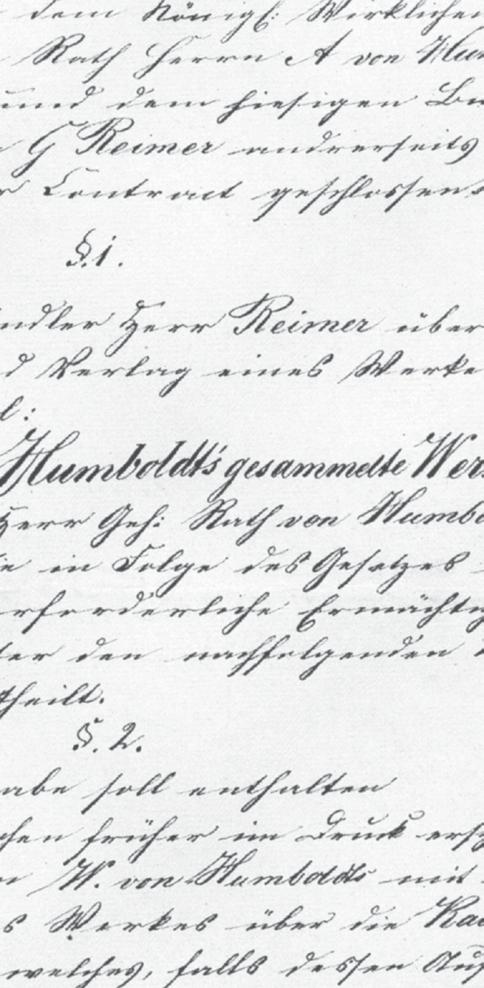 dem Königl: Wirklichen
Rath Herrn A von Hum
und dem hiesigen Bu
G Reimer andrerseits
r Contract geschlossen
§.1.
ndler Herr Reimer über
d Verlag eines Werke
l:
Humboldt's gesammelte Wer
Herr Geh: Rath von Humbo
ie in Folge des Gesetzes
erforderliche Ermächtig
ter den nachfolgenden
theilt.
§.2.
abe soll enthalten
chen früher im Druck ersch
n W. von Humboldts mit
s Werkes über die Kaw
welches, falls dessen Auf